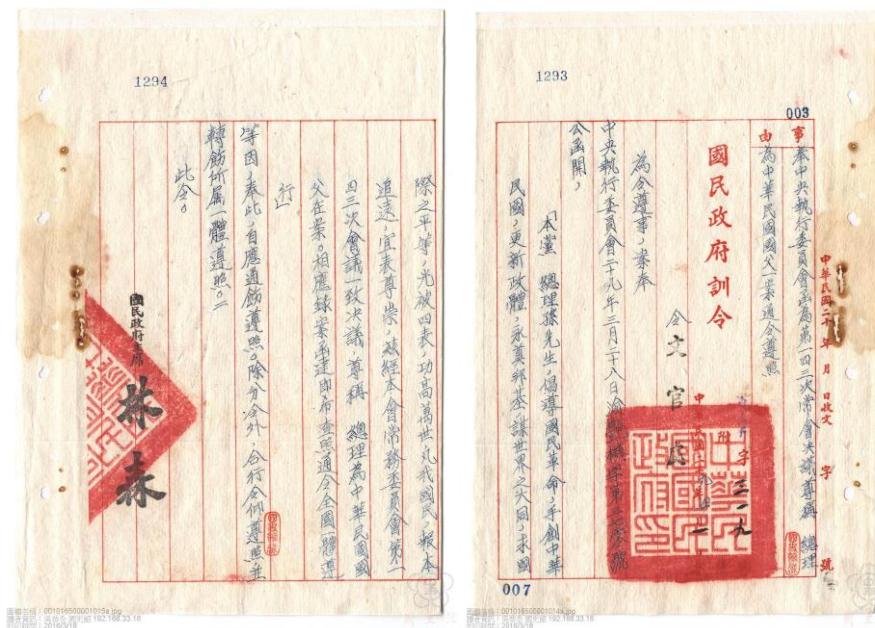 003
1293
事由
奉中央執行委員會函為第一四三次常會決議尊稱 總理
為中華民國國父一案通令遵照
中華民國二十 年 月 日收文 字 號
國民政府訓令
字 三一九
令文官處
為令遵事,案奉
中央執行委員會二十九年三月二十八日渝
公函開,
「本黨 總理孫先生,倡導國民革命,手創中華
民國,更新政體,永奠邦基,謀世界之大同,求國
007
1294
際之平等,光被四表,功高萬世,凡我國民,報本
追遠,宜表尊崇,茲經本會常務委員會第一
四三次會議一致決議,尊稱 總理為中華民國國
父在案。相應錄案函達即希查照通令全國一體遵
行」
等因,奉此,自應通飭遵照。除分令外,合行令仰遵照並
轉飭所屬一體遵照。
此令。
國民政府主席 林森
中華民國國民政府印